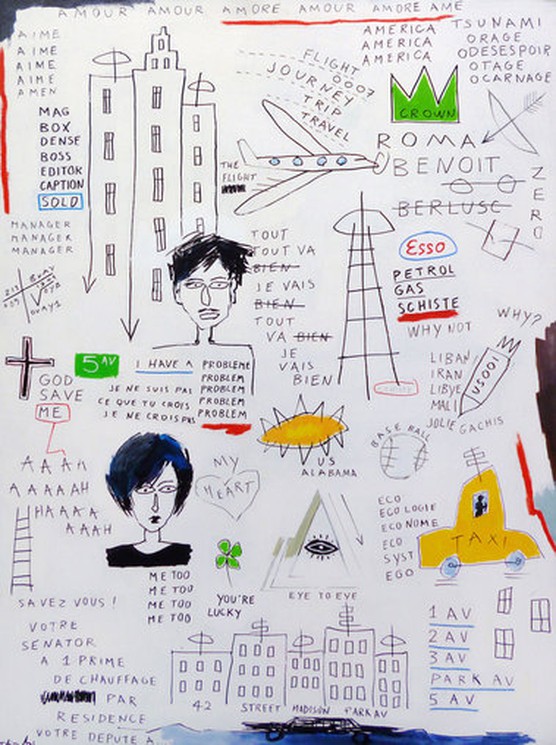 AMOUR AMOUR AMORE AMOUR AMORE AME
AIME
AIME
AIME
AIME
AMEN
MAG
BOX
DENSE
BOSS
EDITOR
CAPTION
SOLD
MANAGER
MANAGER
MANAGER
FLIGHT
0007
JOURNEY
TRIP
TRAVEL
THE
FLIGHT
AMERICA
AMERICA
AMERICA
TSUNAMI
ORAGE
ODESESPOIR
OTAGE
OCARNAGE
CROWN
ROMA
BENOIT
BERLUSC
ZERO
TOUT
TOUT VA
BIEN
JE VAIS
BIEN
TOUT
VA BIEN
JE
VAIS
BIEN
Esso
PETROL
GAS
SCHISTE
WHY NOT
WHY?
LIBAN
IRAN
LIBYE
MALI
JOLIE GACHIS
US001
GOD
SAVE
ME
5 AV
I HAVE A
PROBLEME
PROBLEM
PROBLEM
PROBLEM
PROBLEM
JE NE SUIS PAS
CE QUE TU CROIS
JE NE CROIS PAS
AAAH
AAAAAH
HAAAA
AAAH
MY
HEART
US
ALABAMA
BASE BALL
ECO
ECOLOGIE
ECONOME
ECO
SYST
EGO
TAXI
ME TOO
ME TOO
ME TOO
ME TOO
YOU'RE
LUCKY
EYE TO EYE
SAVEZ VOUS!
VOTRE
SENATOR
A 1 PRIME
DE CHAUFFAGE
PAR
RESIDENCE
VOTRE DEPUTE A
42 STREET MADISON PARK AV
1 AV
2 AV
3 AV
PARK AV
5 AV